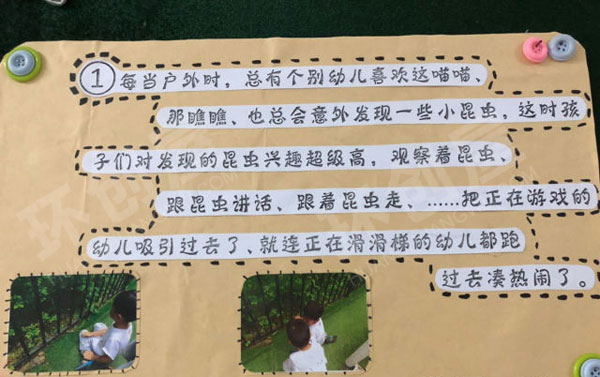 ① 每当户外时，总有个别幼儿喜欢这喵喵、
那瞧瞧、也总会意外发现一些小昆虫，这时孩
子们对发现的昆虫兴趣超级高，观察着昆虫、
跟昆虫讲话、跟着昆虫走、……把正在游戏的
幼儿吸引过去了、就连正在滑滑梯的幼儿都跑
过去凑热闹了。